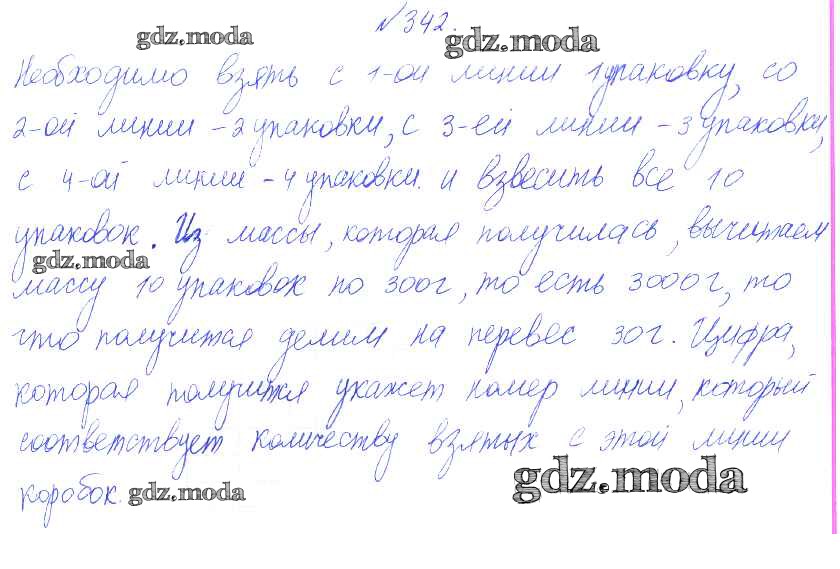 №342.
gdz.moda gdz.moda
Необходимо взять с 1-ой линии 1 упаковку, со
2-ой линии - 2 упаковки, с 3-ей линии - 3 упаковки,
с 4-ой линии - 4 упаковки. и взвесить все 10
упаковок. Из массы, которая получилась, вычитаем
gdz.moda
массу 10 упаковок по 300г, то есть 3000г, то
что получится делим на перевес 30г. Цифра,
которая получится укажет номер линии, который
соответствует количеству взятых с этой линии
коробок. gdz.moda gdz.moda